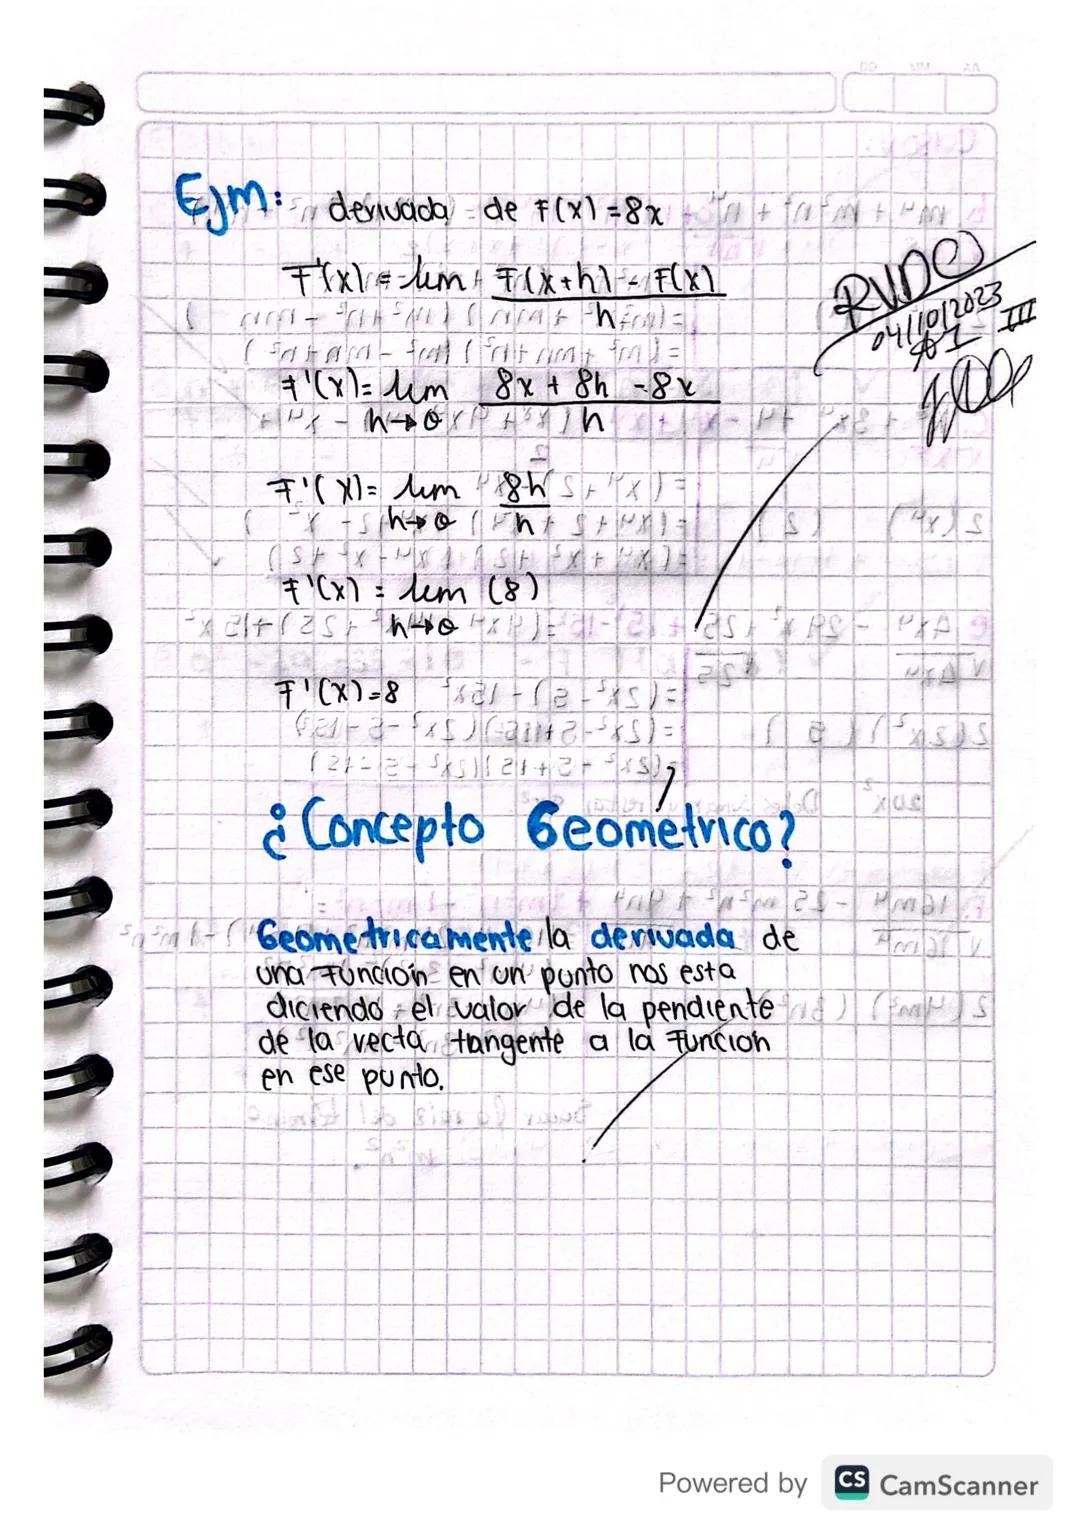 Ejm: derivada de F(x)=8x
F'(x)= lim F(x+h) - F(x)
h
F'(x)= lim 8x + 8h - 8x
h→0 h
F'(x)= lim 8h
h→0 h
F'(x) = lim (8)
h→0
F'(x)=8
¿Concepto Geometrico?
Geometricamente la derivada de
una Función en un punto nos esta
diciendo el valor de la pendiente
de la recta tangente a la Función
en ese punto.
RVDO
04/10/2023
III
Powered by CS CamScanner